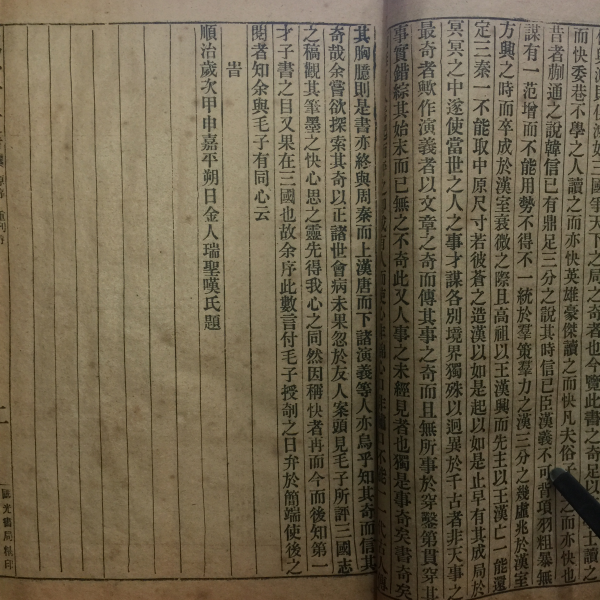 與漁民俱俾海妙三國爭天下之局之奇者也今覽此書之奇足以
而快委巷不學之人讀之而亦快英雄豪傑讀之而快凡夫俗子
昔者蒯通之說韓信已有鼎足三分之說其時信已臣漢義不可背項羽粗暴無
謀有一范增而不能用勢不得不一統於羣策羣力之漢三分之幾虛兆於漢室
方興之時而卒成於漢室衰微之際且高祖以王漢興而先主以王漢亡一能還
定三秦一不能取中原尺寸若彼蒼之造漢以如是起以如是止早有其成局於
冥冥之中遂使當世之人之事才謀各別境界獨殊以迥異於千古者非天事之
最奇者歟作演義者以文章之奇而傳其事之奇而且無所事於穿鑿第貫穿其
事實錯綜其始末而已無之不奇此又人事之未經見者也獨是事奇矣書奇矣
其胸臆則是書亦終與周秦而上漢唐而下諸演義等人亦烏乎知其奇而信其
奇哉余嘗欲探索其奇以正諸世會病未果忽於友人案頭見毛子所評三國志
之稿觀其筆墨之快心思之靈先得我心之同然因稱快者再而今而後知第一
才子書之目又果在三國也故余序此數言付毛子授剞之日弁於簡端使後之
閱者知余與毛子有同心云
旹
順治歲次甲申嘉平朔日金人瑞聖嘆氏題
二